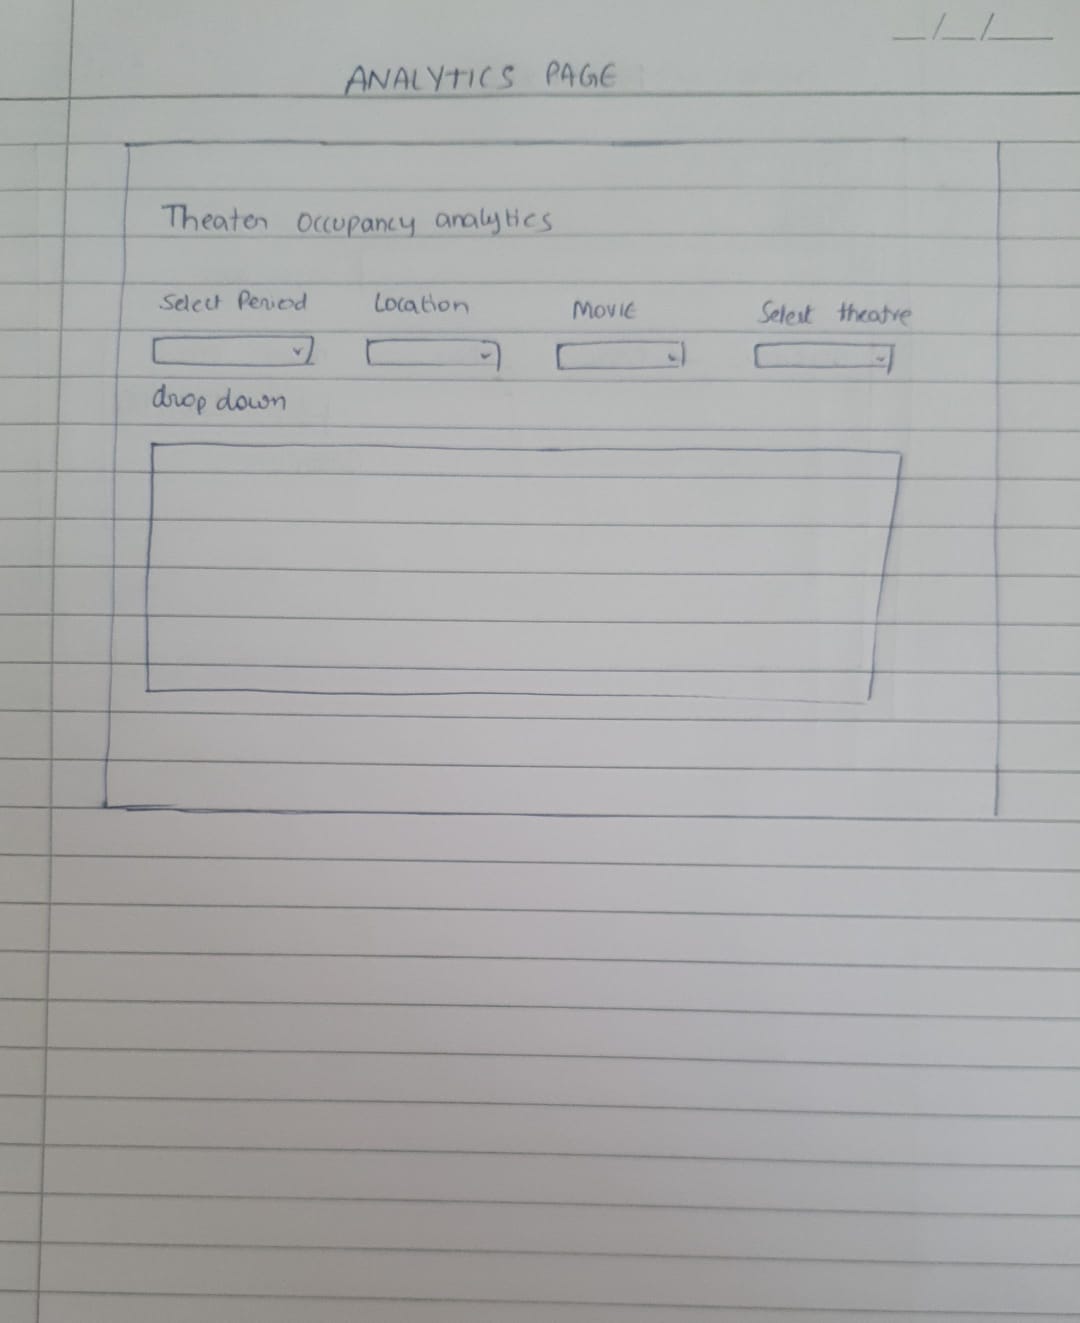 _/_/_
ANALYTICS PAGE
Theater occupancy analytics
Select Period Location MOVIE Select theatre
drop down